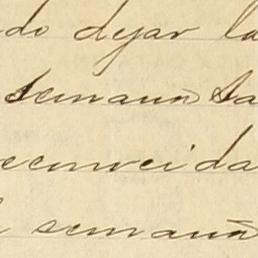 do dejar la
semana Sa
reconocida
semana